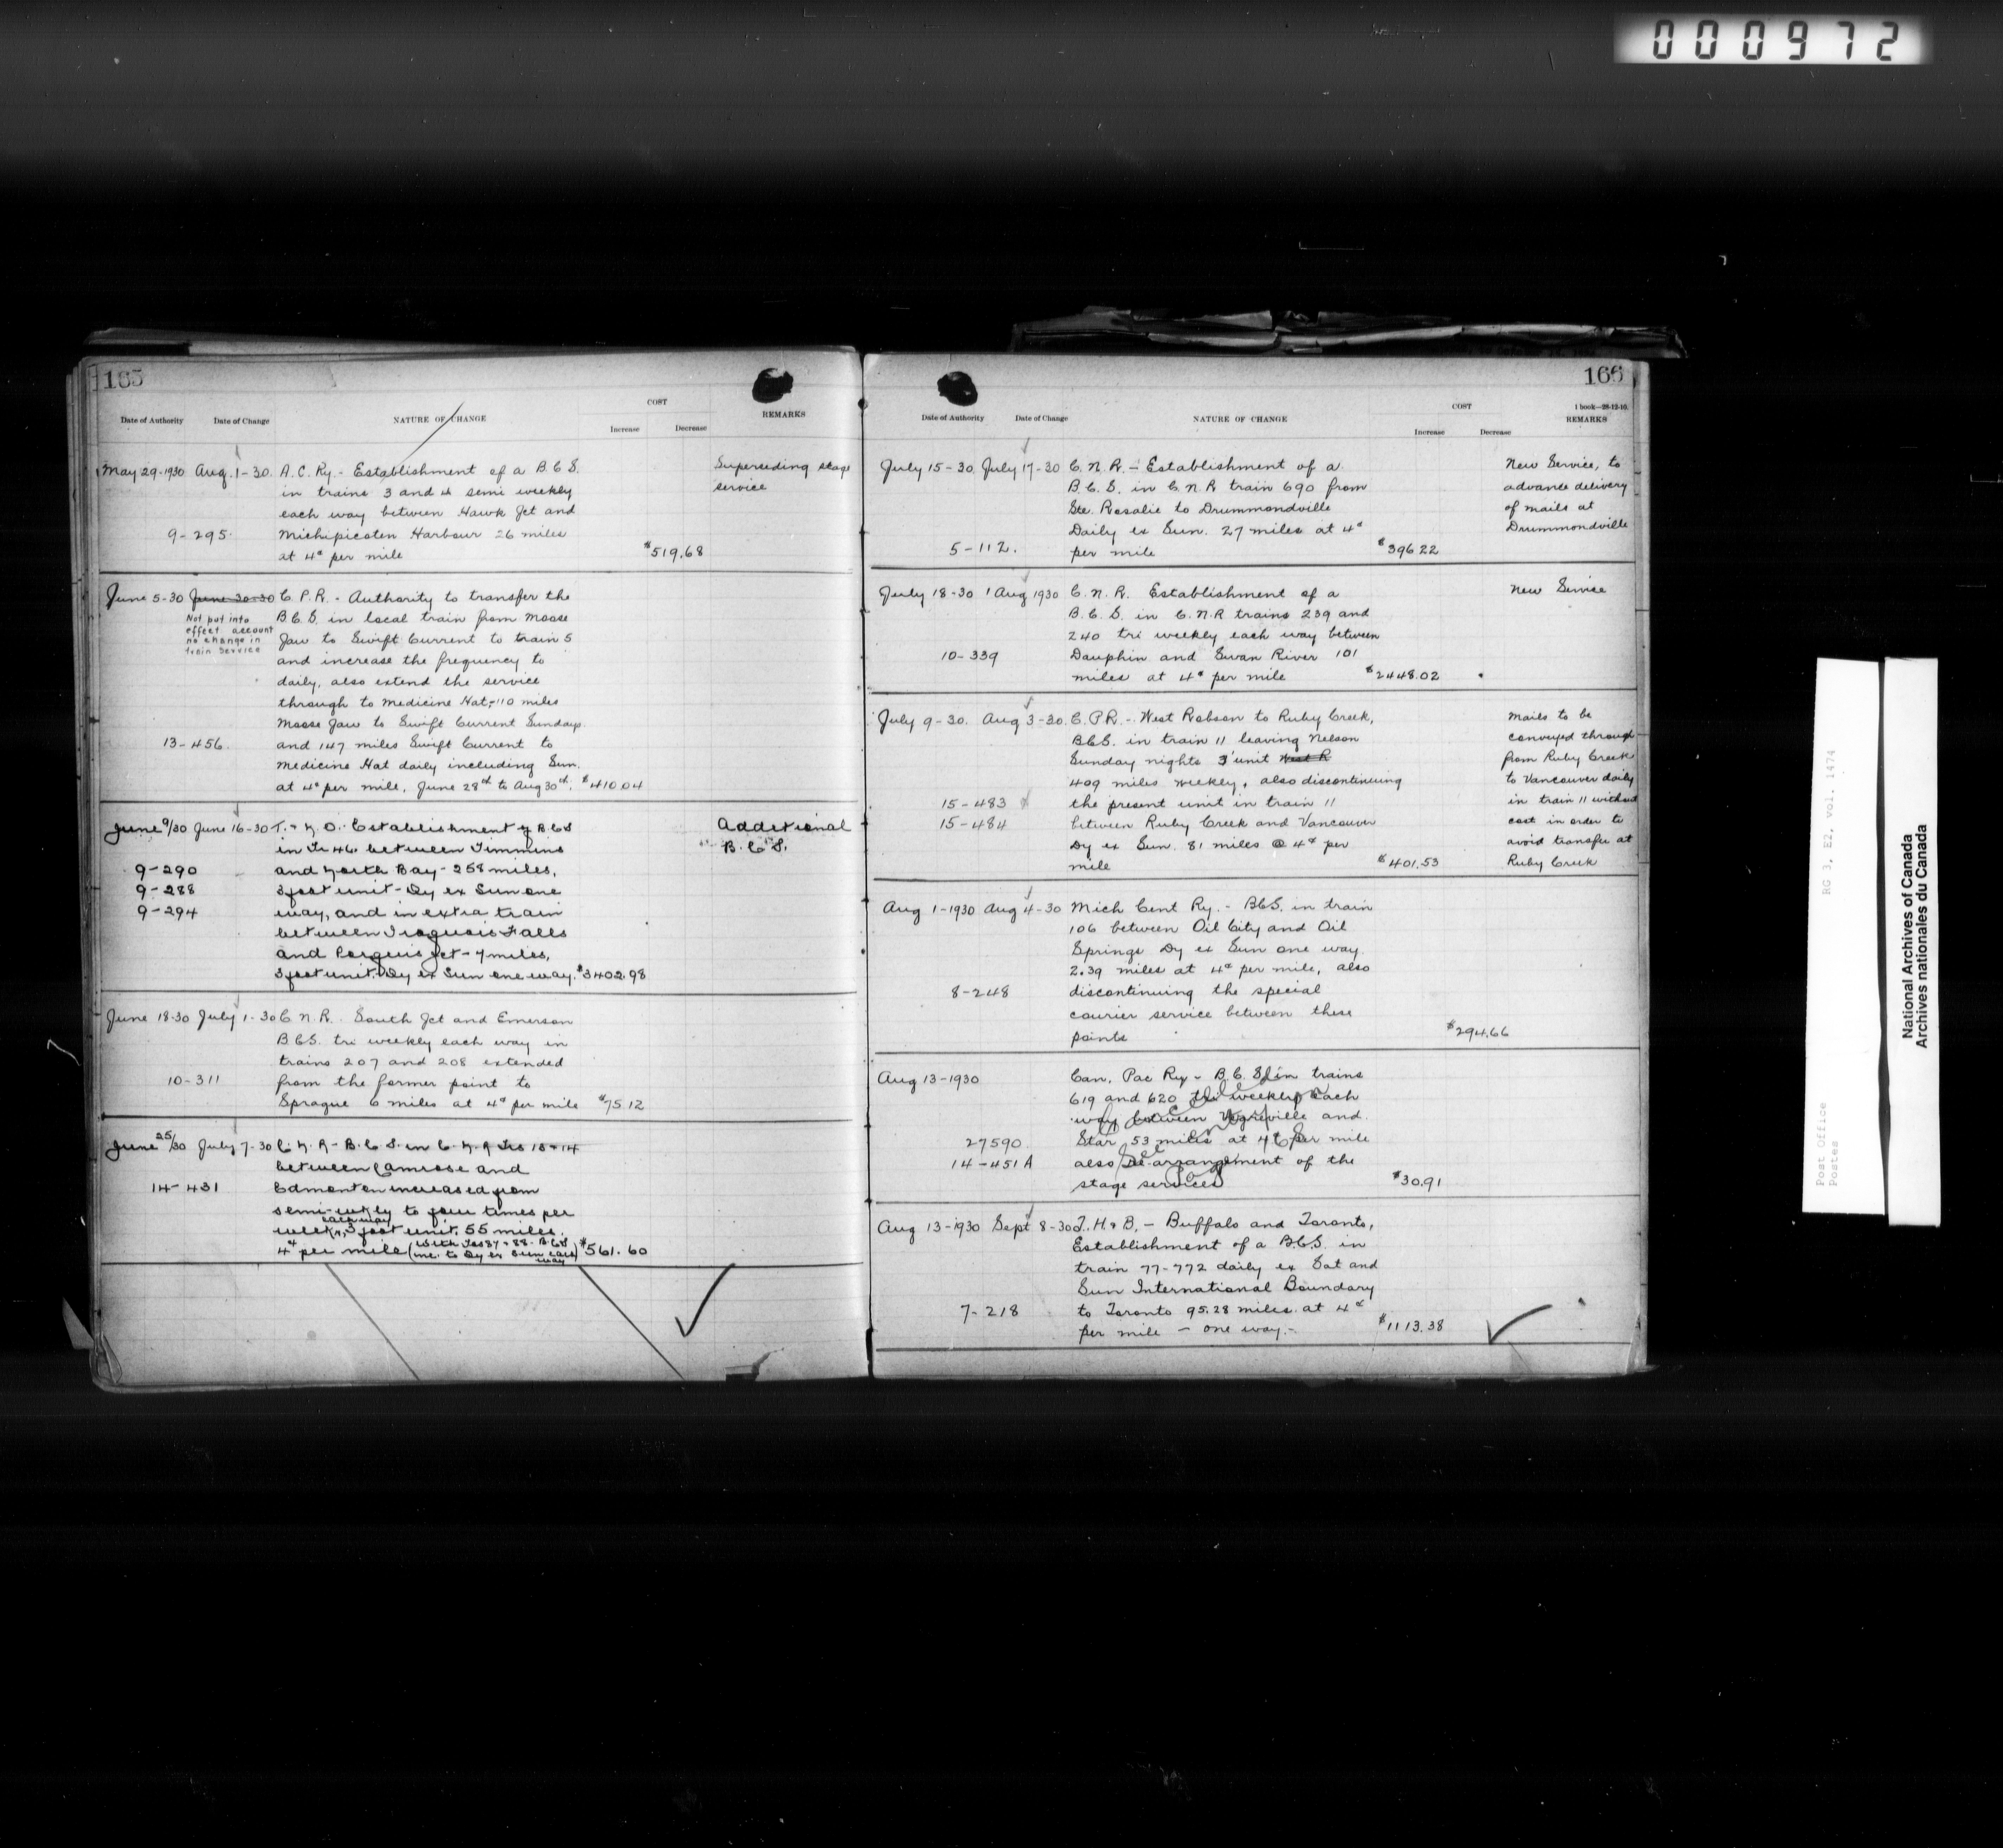 000972
165
COST
Date of Authority Date of Change NATURE OF CHANGE Increase Decrease REMARKS
May 29-1930 Aug. 1-30. A. C. Ry - Establishment of a B.C.S. Superseding stage
in trains 3 and 4 semi weekly service
each way between Hawk Jct and
9-295. Michipicoten Harbour 26 miles
at 4¢ per mile $519.68
June 5-30 June 30-30 C. P. R. - Authority to transfer the
Not put into B.C.S. in local train from Moose
effect account Jaw to Swift Current to train 5
no change in
train service and increase the frequency to
daily, also extend the service
through to Medicine Hat, -110 miles
Moose Jaw to Swift Current Sundays.
13-456. and 147 miles Swift Current to
Medicine Hat daily including Sun.
at 4¢ per mile, June 28th to Aug 30th. $410.04
June 9/30 June 16-30 T. & N. O. Establishment of B.C.S Additional
in Tr 46. between Timmins B.C.S.
9-290 and North Bay - 258 miles,
9-288 3 foot unit - Dy ex Sun one
9-294 way, and in extra train
between Iroquois Falls
and Porquis Jct - 7 miles,
3 foot unit. Dy ex Sun one way. $3402.98
June 18-30 July 1-30 C. N. R. South Jct and Emerson
B.C.S. tri weekly each way in
trains 207 and 208 extended
10-311 from the former point to
Sprague 6 miles at 4¢ per mile $75.12
June 25/30 July 7-30 C. N. R - B.C.S. in C. N. R Trs 13 & 14
between Camrose and
14-431 Edmonton increased from
semi-wkly to four times per
week, each way 3 foot unit. 55 miles.
4¢ per mile (with Trs 87 & 88. B.C.S. $561.60
inc. to Dy ex Sun each way)
166
COST 1 book-28-12-10.
Date of Authority Date of Change NATURE OF CHANGE Increase Decrease REMARKS
July 15-30 July 17-30 C. N. R. - Establishment of a New Service, to
B.C.S. in C.N.R train 690 from advance delivery
Ste. Rosalie to Drummondville of mails at
Daily ex Sun. 27 miles at 4¢ Drummondville
5-112. per mile $396.22
July 18-30 1 Aug 1930 C. N. R. Establishment of a New Service
B.C.S. in C.N.R trains 239 and
240 tri weekly each way between
10-339 Dauphin and Swan River 101
miles at 4¢ per mile $2448.02
July 9-30. Aug 3-30. C. P. R. - West Robson to Ruby Creek, Mails to be
B.C.S. in train 11 leaving Nelson conveyed through
Sunday nights 3' unit West R from Ruby Creek
409 miles weekly, also discontinuing to Vancouver daily
15-483 the present unit in train 11 in train 11 without
15-484 between Ruby Creek and Vancouver cost in order to
Dy ex Sun. 81 miles @ 4¢ per avoid transfer at
mile $401.53 Ruby Creek
Aug 1-1930 Aug 4-30 Mich Cent Ry. - B.C.S. in train
106 between Oil City and Oil
Springs Dy ex Sun one way.
2.39 miles at 4¢ per mile, also
8-248 discontinuing the special
courier service between these
points $294.66
Aug 13-1930 Can. Pac Ry - B.C.S. in trains
619 and 620 tri weekly each
way between Vegreville and
27590 Star 53 miles at 4¢ per mile
14-451A also re-arrangement of the
stage services $30.91
Cancelled
Aug 13-1930 Sept 8-30 T. H. & B. - Buffalo and Toronto,
Establishment of a B.C.S. in
train 77-772 daily ex Sat and
Sun International Boundary
7-218 to Toronto 95.28 miles at 4¢
per mile - one way. - $1113.38
Post Office
Postes
RG 3, E2, vol. 1474
National Archives of Canada
Archives nationales du Canada